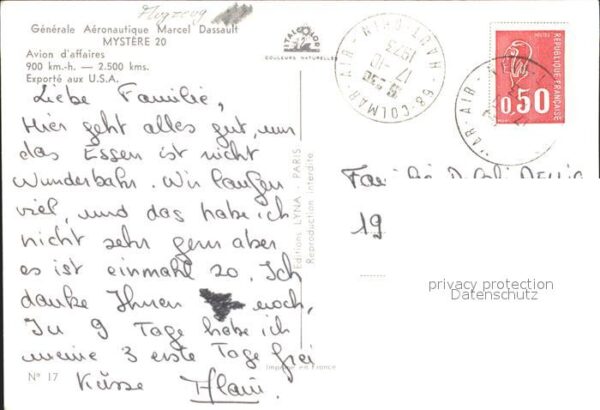 Flugzeug
Générale Aéronautique Marcel Dassault
MYSTÈRE 20
Avion d'affaires
900 km.-h — 2.500 kms.
Exporté aux U.S.A.
Liebe Familie,
Hier geht alles gut, nur
das Essen ist nicht
Wunderbahr. Wir laufen
viel, und das habe ich
nicht sehr gern aber
es ist einmahl so. Ich
danke Ihnen noch,
In 9 Tage habe ich
meine 3 erste Tage frei
Küsse
N° 17
ITALCOLOR
COULEURS NATURELLES
Editions LYNA - PARIS
Reproduction interdite
Imprimé en France
68-COLMAR-AIR
HAUT-RHIN
17
-10
1973
POSTES
RÉPUBLIQUE FRANÇAISE
0,50
AR-AIR
19
privacy protection
Datenschutz